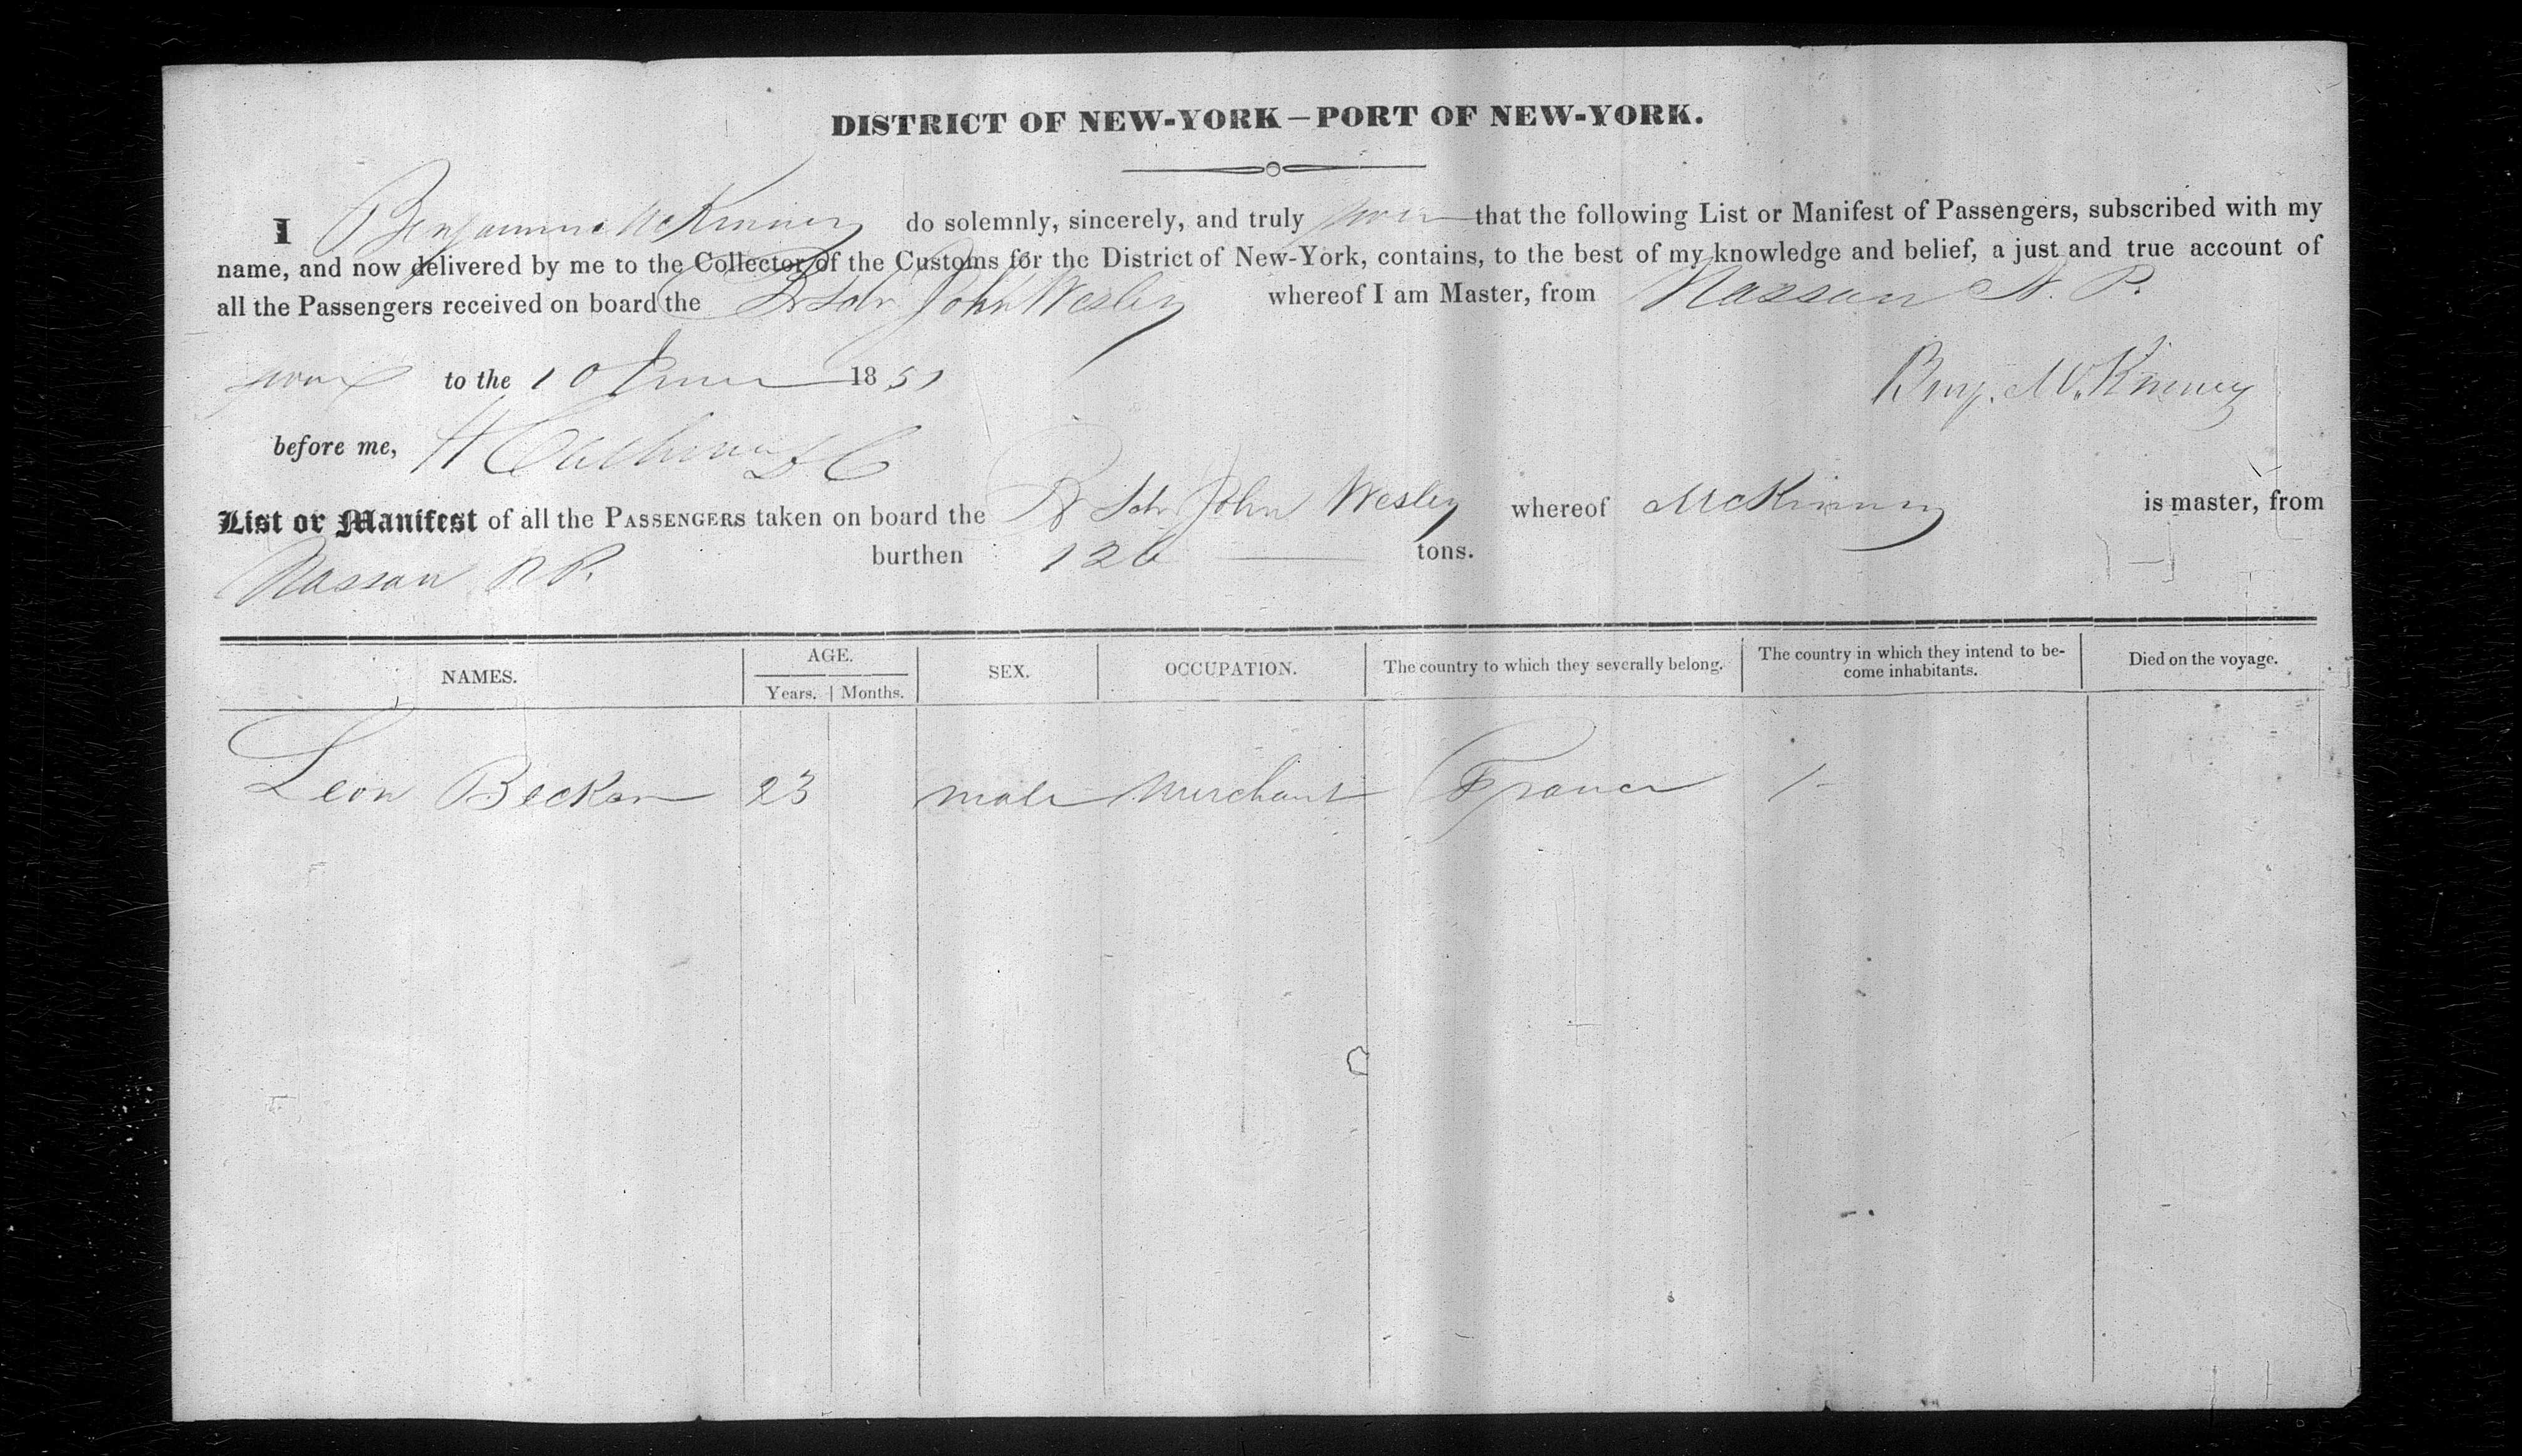 DISTRICT OF NEW-YORK—PORT OF NEW-YORK.
I Benjamin McKinney do solemnly, sincerely, and truly swear that the following List or Manifest of Passengers, subscribed with my
name, and now delivered by me to the Collector of the Customs for the District of New-York, contains, to the best of my knowledge and belief, a just and true account of
all the Passengers received on board the Br Schr John Wesley whereof I am Master, from Nassau N. P.
to the 10 June 1851
Benj. McKinney
before me, H
List or Manifest of all the PASSENGERS taken on board the Br Schr John Wesley whereof McKinney is master, from
Nassau N P. burthen 126 tons.
NAMES. AGE. SEX. OCCUPATION. The country to which they severally belong. The country in which they intend to be-
come inhabitants. Died on the voyage.
Years. Months.
Leon Becker 23 male Merchant France